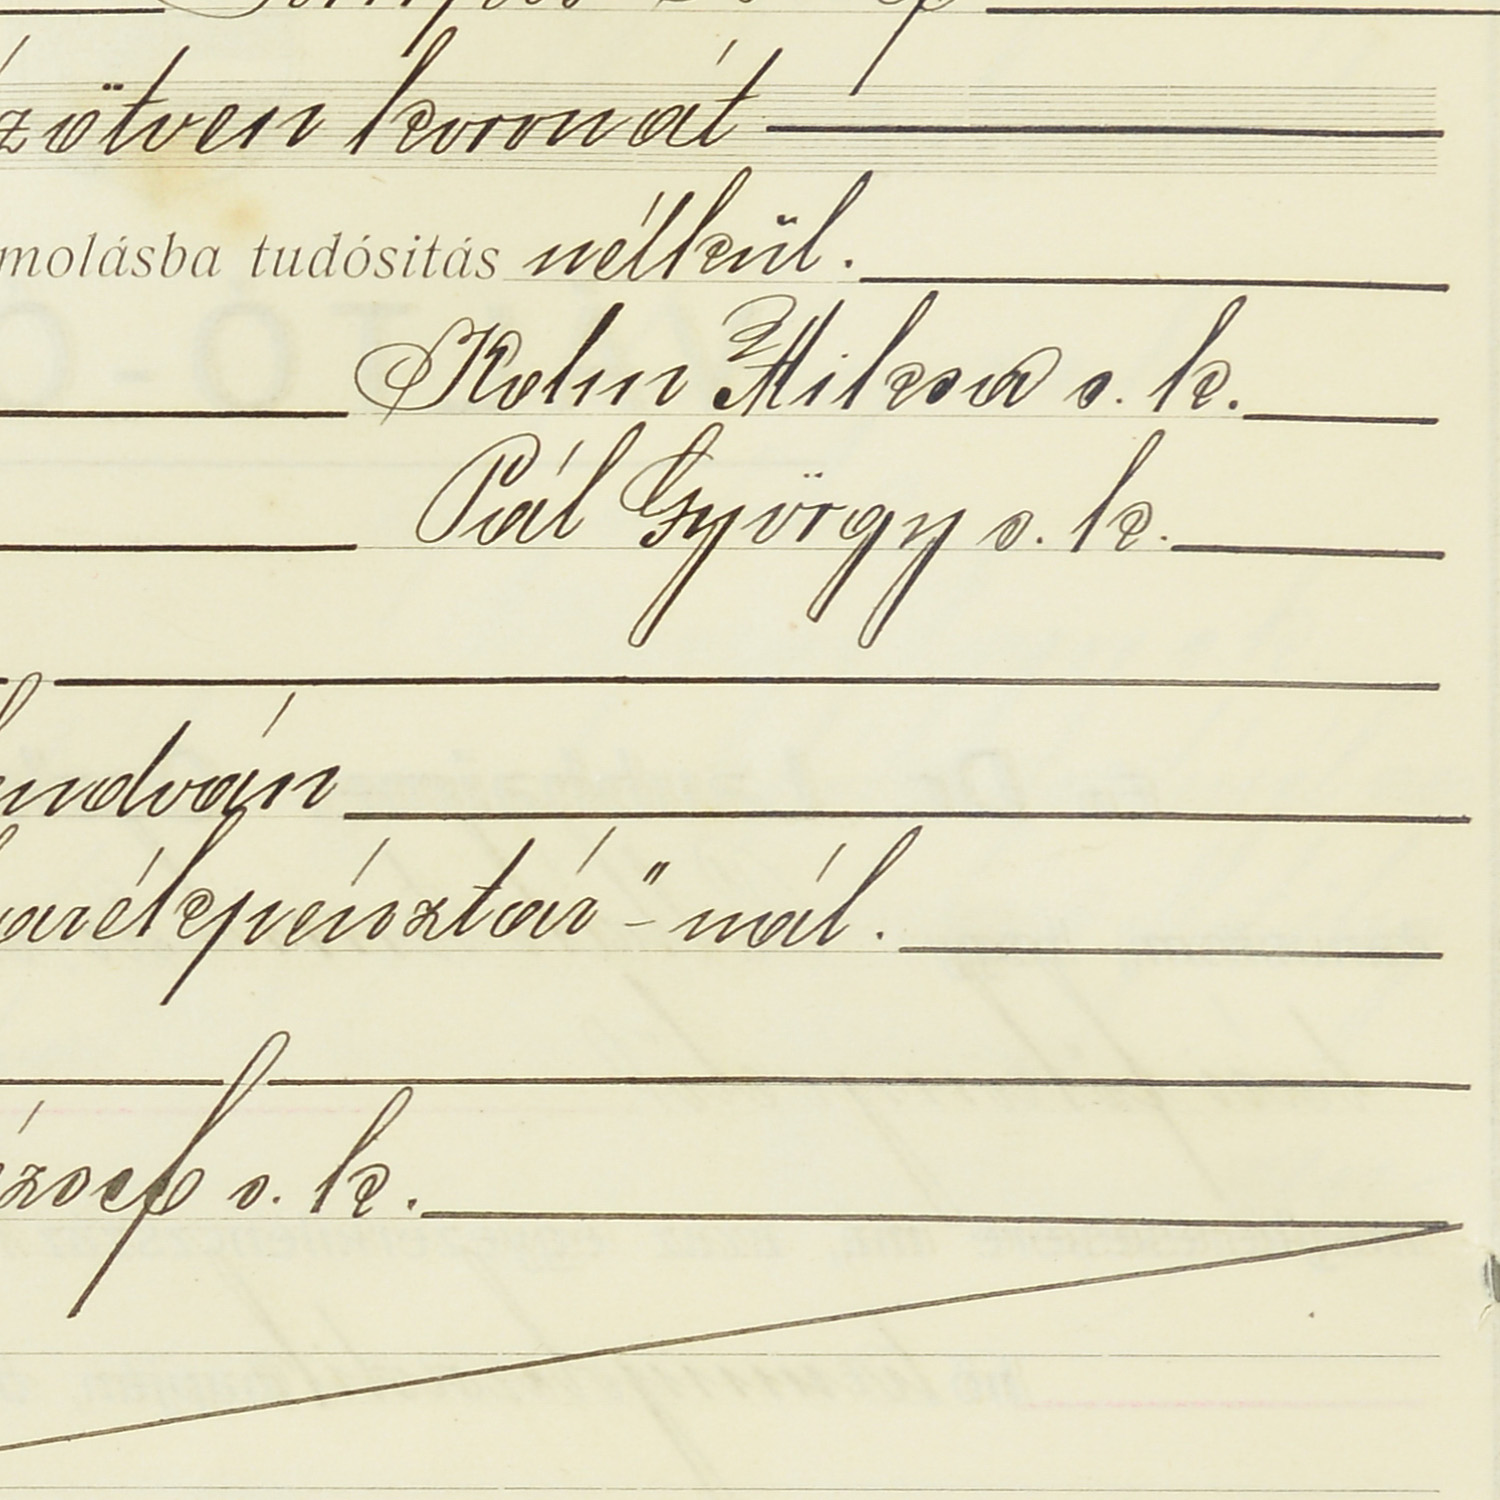 zötven koronát
molásba tudósitás nélkül.
Kohn Miksa s. k.
Pál György s. k.
endván
arékpénztár"-nál.
ózsef s. k.